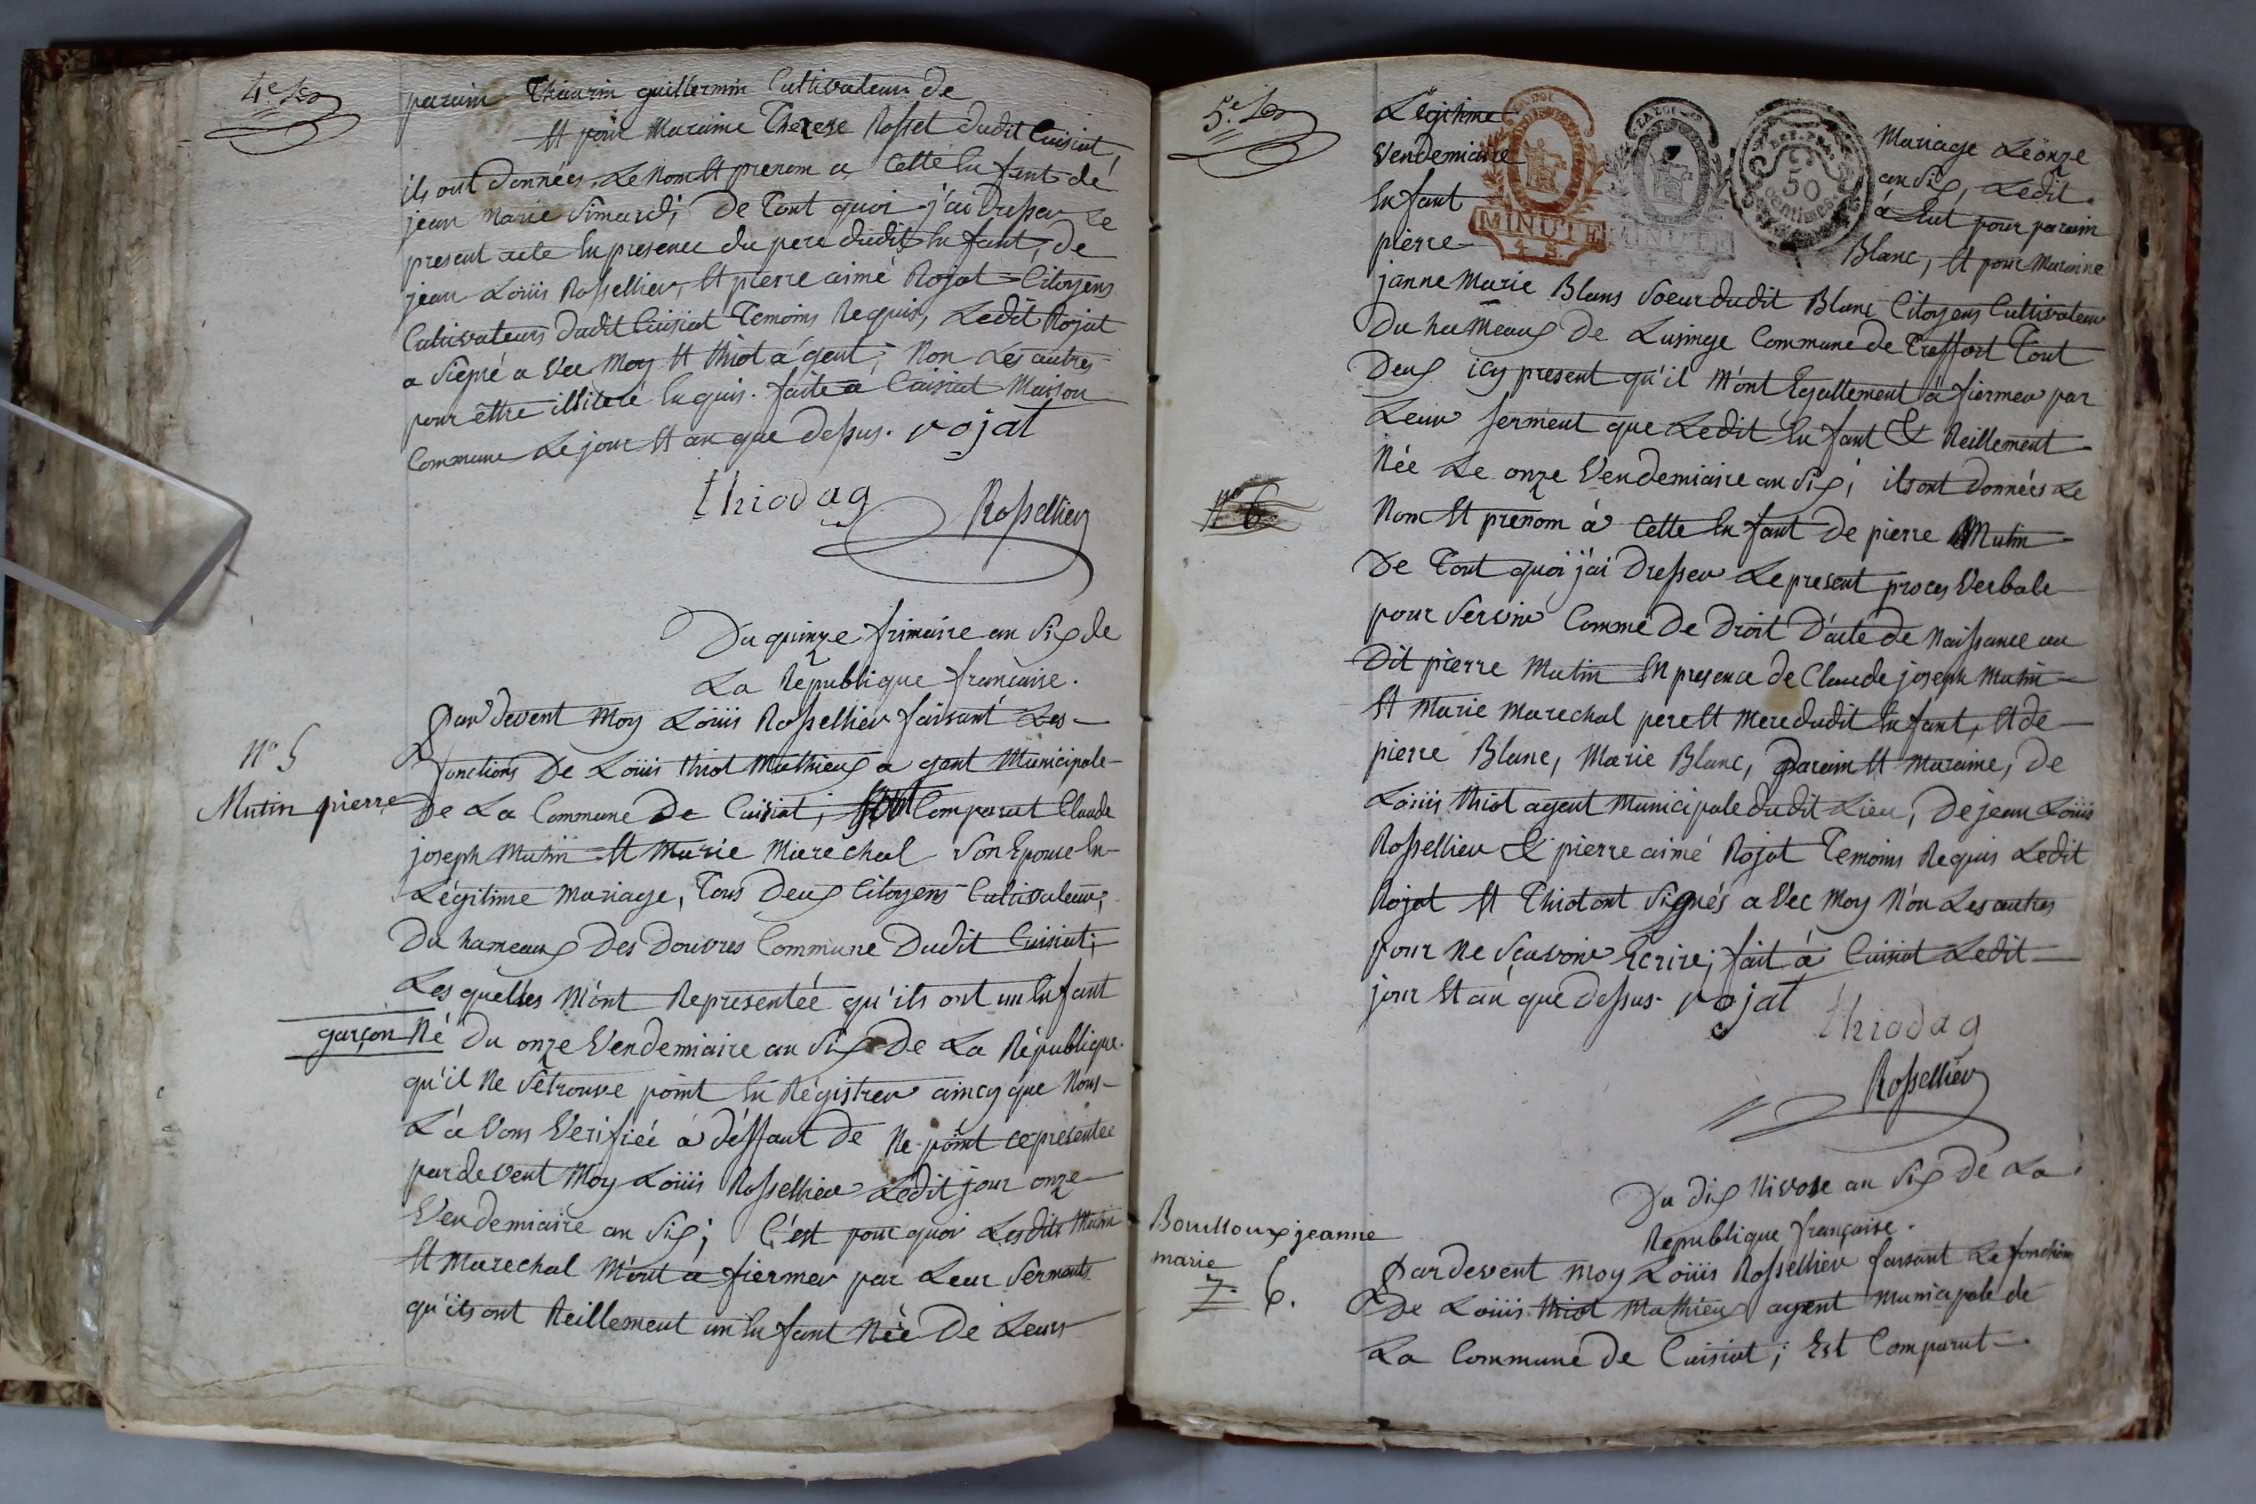 4e
parain Thaurin guillermin Cultivateur de
Et pour Maraine Therese Rosset dudit Cuisiat,
ils ont données Le Nom Et prenom a Cette Enfant de
jean Marie Simard; De Tout quoi j'ai Dresser Le
present acte En presence du pere dudit Enfant, de
jean Loüis Rossellier, Et pierre aimé Rojat Citoyens
Cultivateurs dudit Cuisiat Temoins Requis, Ledit Rojat
a Siepré a Vec Moy Et thiot agent; Non Les autres
pour ettre illiteré Enquis. faite a Cuisiat Maison
Commune Le jour Et an que Dessus. rojat
thiodag
Rossellier
Du quinze frimaire an Six de
La République française.
N° 5
Mutin pierre
Par Devent Moy Loüis Rossellier faisant Les
fonctions De Loüis thiot Mathieux agent Municipale
De La Commune De Cuisiat; Comparut Claude
joseph Mutin Et Marie Marechal Son Epouse En
Légitime Mariage, Tous Deux Citoyens Cultivateurs,
Du hameaux Des Douvres Commune Dudit Cuisiat;
Les quelles M'ont Representée qu'ils ont un Enfant
garçon Né Du onze Vendemiaire an Six De La République.
qu'il Ne Sétrouve point En Régistrer aincy que Nous
La Vons Vérifiée a déffaut De Ne point ce présentée
pardevent Moy Loüis Rossellier Ledit jour onze
Vendemiaire an Six; C'est pourquoi Lesdits Mutin
Et Marechal M'ont afiermer par Leur Serments
qu'ils ont Reillement un Enfant Née De Leurs
5e
Légitime Mariage Léonze
Vendemiaire an Six, Ledit
Enfant à Eut pour parain
pierre Blanc, Et pour Maraine
janne Marie Blans Soeur dudit Blanc Citoyens Cultivateur
Du haMeaux De Lusinge Commune De Treffort Tout
Deux icy present qu'il M'ont Egallement àfiermer par
Leur serment que Ledit Enfant Et Reillement
Née Le onze Vendemiaire an Six; ils ont données Le
N° 6
Nom Et prenom à Cette Enfant De pierre Mutin
De Tout quoi j'ai Dresser Le present proces Verbale
pour Servir Comme De Droit D'acte De Naissance au
Dit pierre Mutin En presence de Claude joseph Mutin
Et Marie Marechal pere Et Mere dudit Enfant, Et de
pierre Blanc, Marie Blanc, parain Et Maraine, De
Loüis thiot agent Municipale dudit Lieu, De jean Loüis
Rossellier Et pierre aimé Rojat Temoins Requis Ledit
Rojat Et Thiot ont Signés a Vec Moy Non Les autres
pour Ne Sçavoir Ecrire; fait à Cuisiat Ledit
jour Et an que Dessus. rojat
thiodag
Rossellier
Du dix Nivose an Six De La
Republique française.
Bouilloux jeanne
marie
7. 6.
Pardevent moy Loüis Rossellier faisant Le fonction
De Loüis thiot Mathieux agent municipale de
La Commune De Cuisiat; Est Comparut
LA LOI
MINUTE
LA LOI
MINUTE
50
Centimes